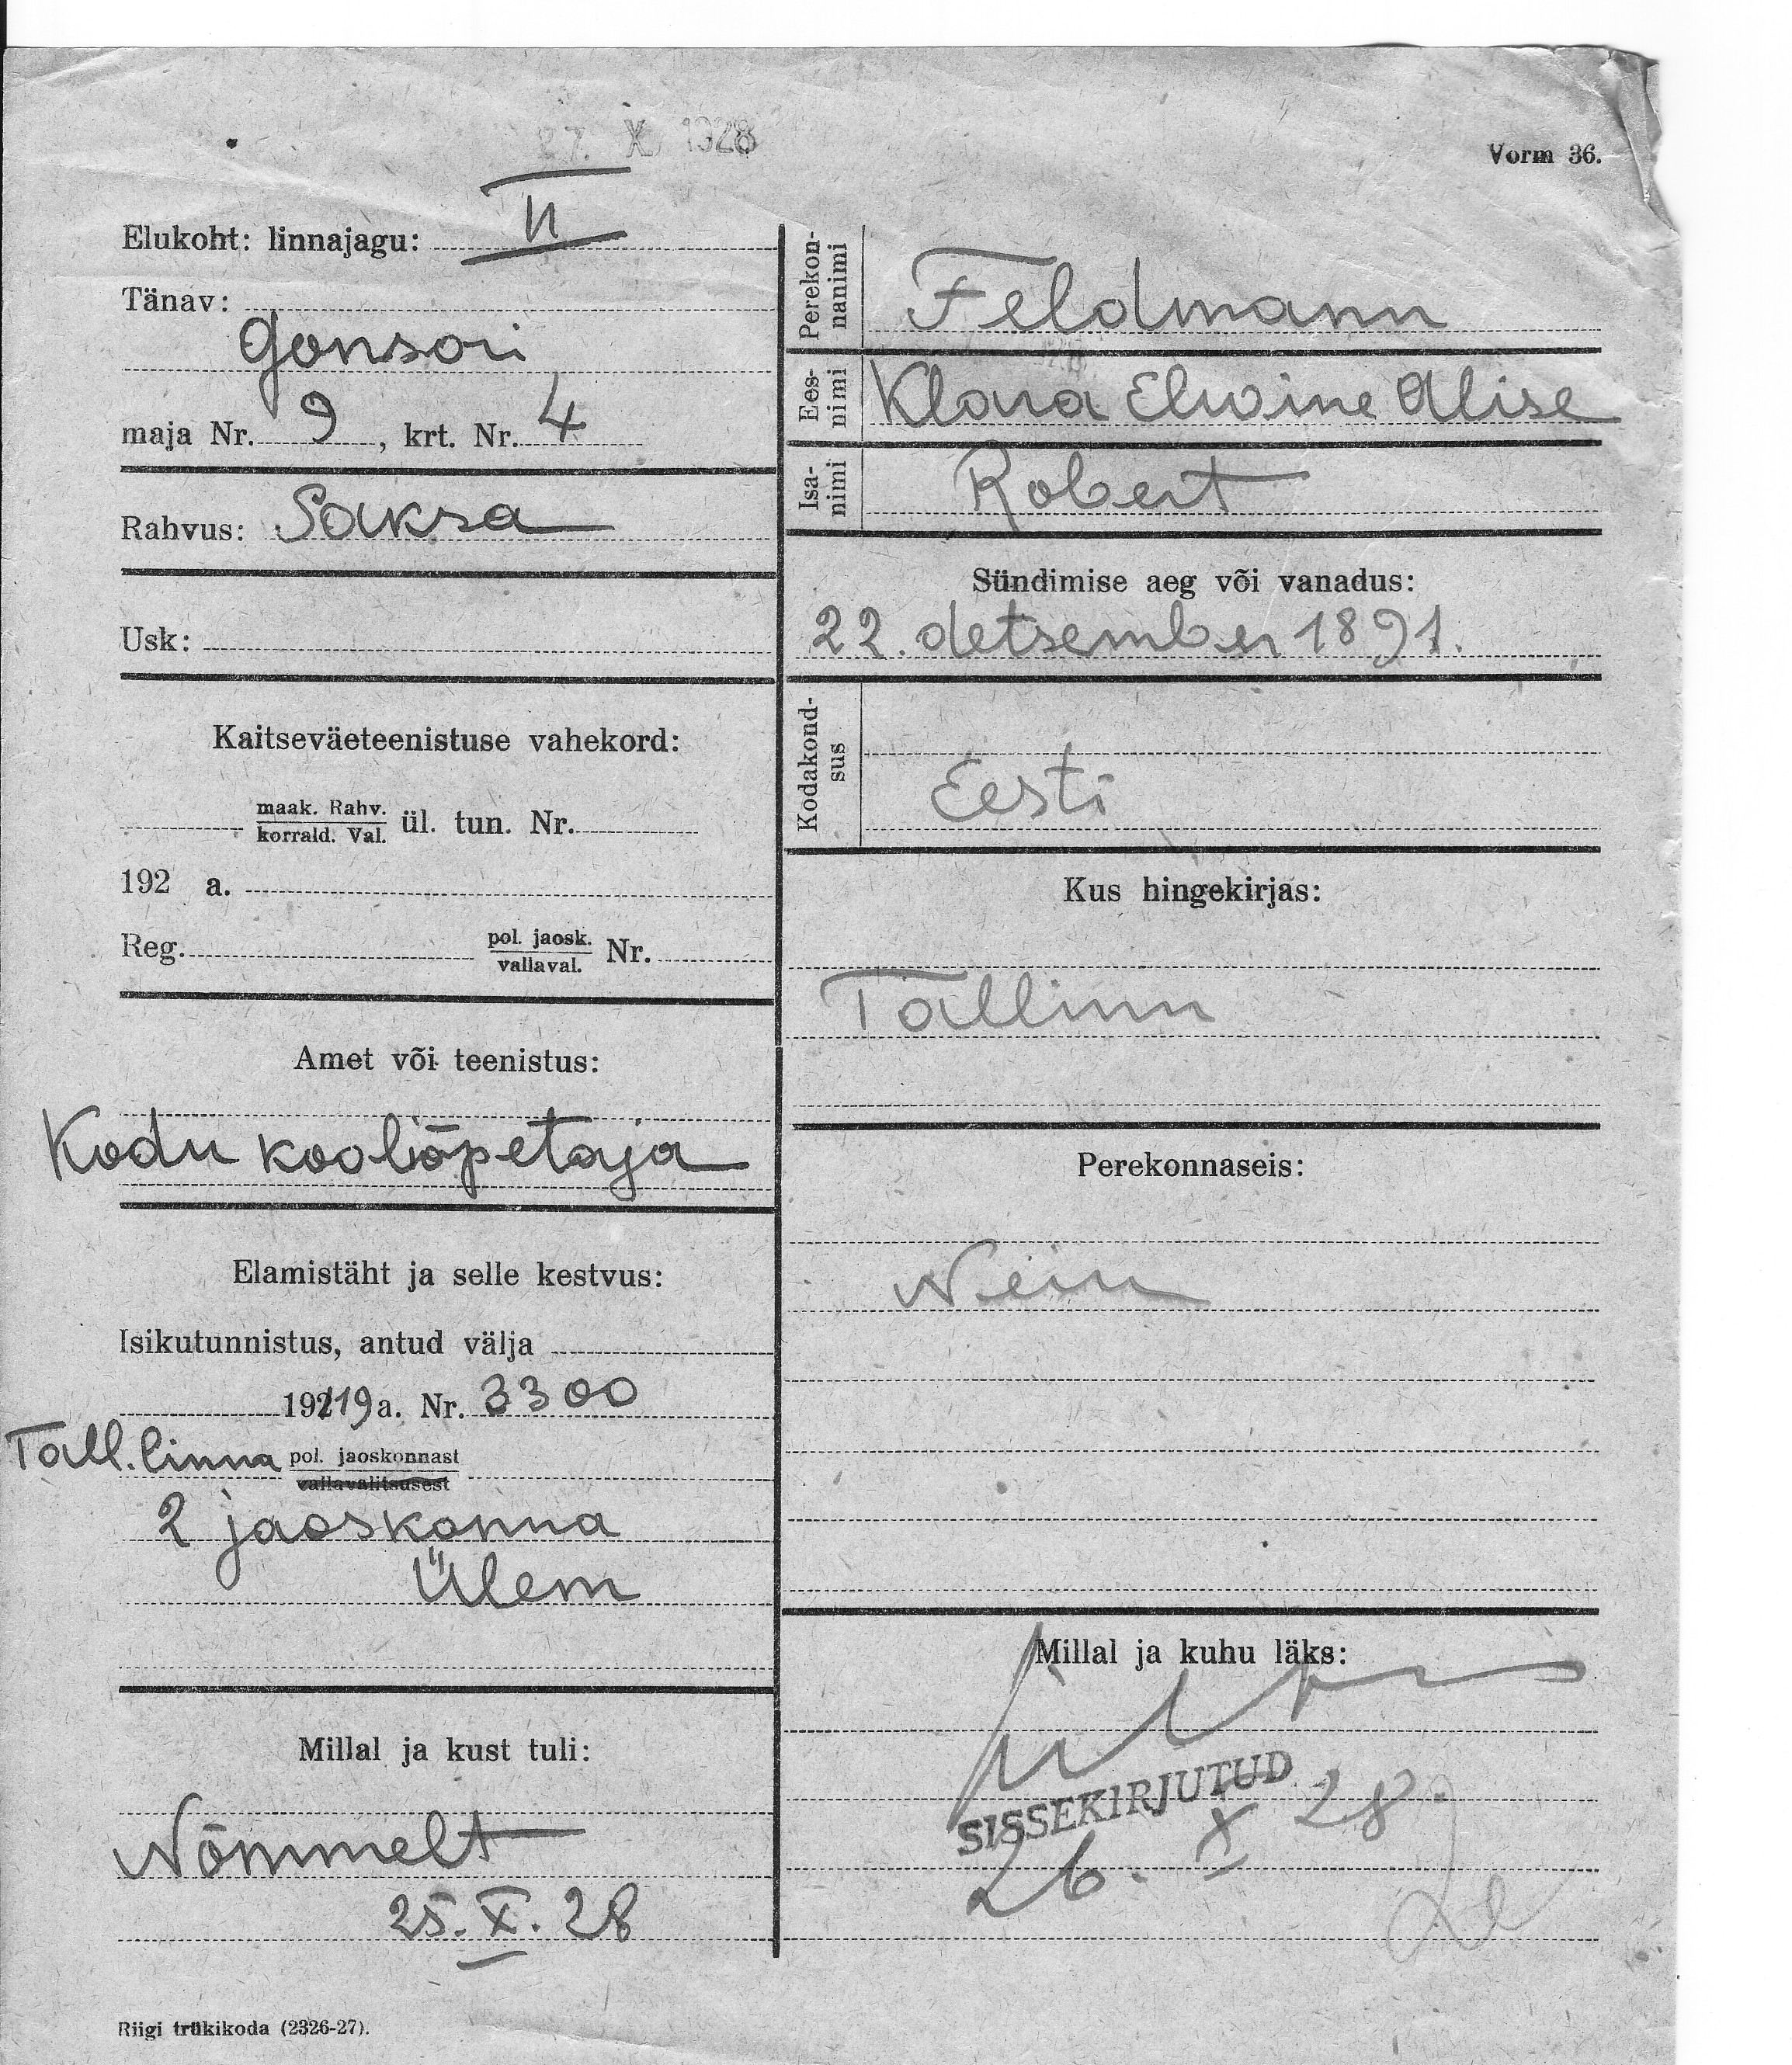 27. X 1928
Vorm 36.
Elukoht: linnajagu: II
Tänav:
Gonsori
maja Nr. 9, krt. Nr. 4
Rahvus: Saksa
Usk:
Kaitseväeteenistuse vahekord:
maak. Rahv.
korrald. Val. ül. tun. Nr.
192 a.
Reg. pol. jaosk. Nr.
vallaval.
Amet või teenistus:
Kodu kooliõpetaja
Elamistäht ja selle kestvus:
Isikutunnistus, antud välja
19219a. Nr. 3300
Tall. linna pol. jaoskonnast
vallavalitsusest
2 jaoskonna
Ülem
Millal ja kust tuli:
Nõmmelt
25. X. 28
Riigi trükikoda (2326-27).
Perekon-
nanimi Feldmann
Ees-
nimi Klara Elwine Alise
Isa-
nimi Robert
Sündimise aeg või vanadus:
22. detsember 1891.
Kodakond-
sus Eesti
Kus hingekirjas:
Tallinn
Perekonnaseis:
Neiu
Millal ja kuhu läks:
SISSEKIRJUTUD
26. X 28